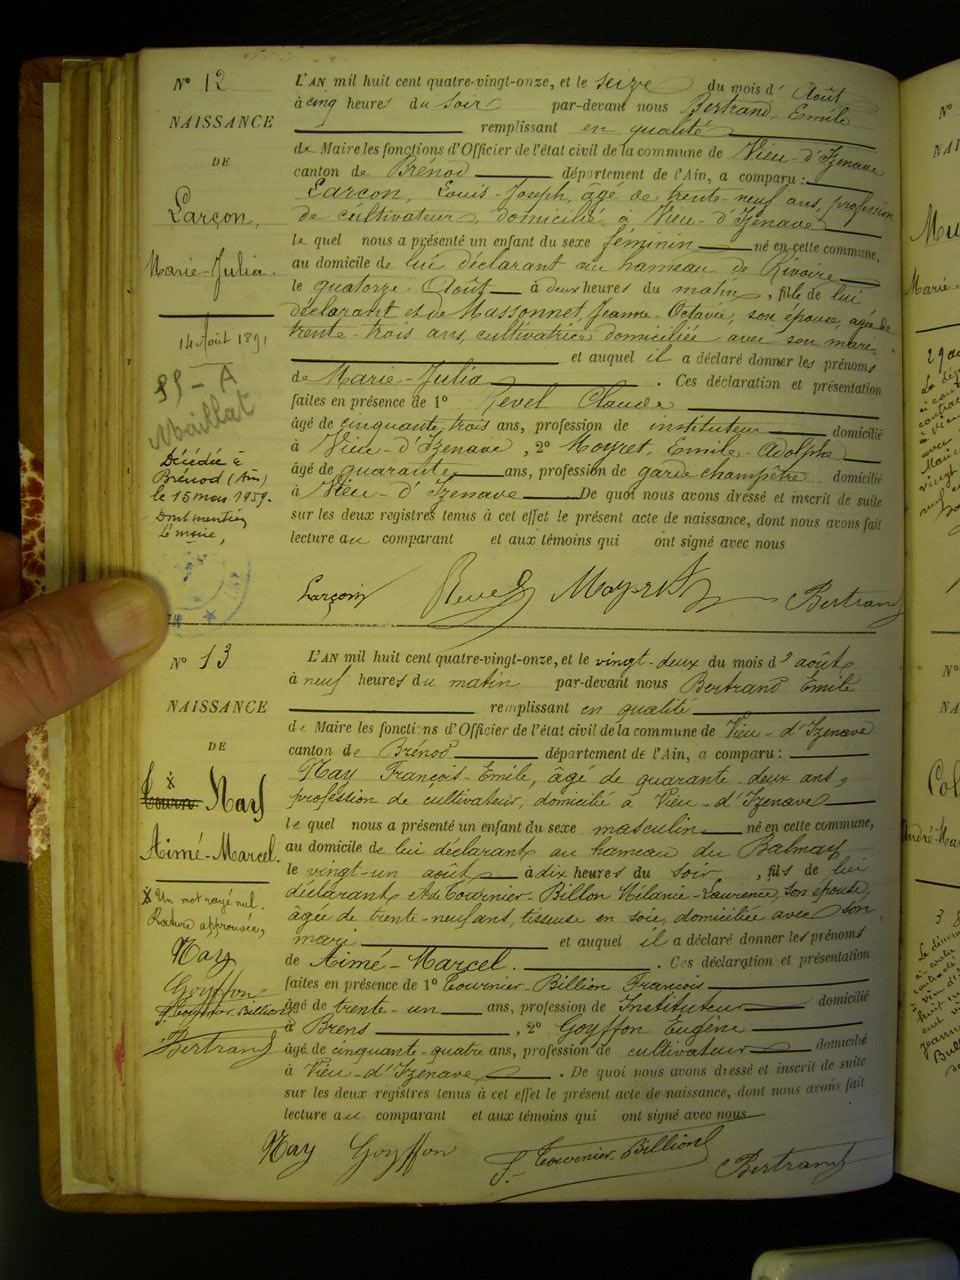 N° 12
NAISSANCE
DE
Larçon,
Marie-Julia.
14 Août 1891
Maillat
Décédée à
Brénod (Ain)
le 15 mars 1959.
Dont mention
Le maire,
L'AN mil huit cent quatre-vingt-onze, et le seize du mois d'Août
à cinq heures du soir par-devant nous Bertrand, Emile
remplissant en qualité
de Maire les fonctions d'Officier de l'état civil de la commune de Vieu-d'Izenave
canton de Brénod département de l'Ain, a comparu :
Larçon, Louis-Joseph, âgé de trente-neuf ans, profession
de cultivateur, domicilié à Vieu-d'Izenave
le quel nous a présenté un enfant du sexe féminin né en cette commune,
au domicile de lui déclarant au hameau de Rivoire
le quatorze Août à deux heures du matin, fille de lui
déclarant et de Massonnet, Jeanne-Octavie, son épouse, agée de
trente-trois ans, cultivatrice domiciliée avec son mari
et auquel il a déclaré donner les prénoms
de Marie-Julia. Ces déclaration et présentation
faites en présence de 1° Revel Claude
âgé de cinquante trois ans, profession de instituteur domicilié
à Vieu-d'Izenave, 2° Moyret, Emile-Adolphe
âgé de quarante ans, profession de garde champêtre domicilié
à Vieu-d'Izenave De quoi nous avons dressé et inscrit de suite
sur les deux registres tenus à cet effet le présent acte de naissance, dont nous avons fait
lecture au comparant et aux témoins qui ont signé avec nous
Larçon Revel Moyret Bertrand
N° 13
NAISSANCE
DE
x
Nay
Aimé-Marcel.
x Un mot rayé nul.
Rature approuvée,
Nay
Goyffon
F. Tournier-Billion
Bertrand
L'AN mil huit cent quatre-vingt-onze, et le vingt-deux du mois d'août
à neuf heures du matin par-devant nous Bertrand Emile
remplissant en qualité
de Maire les fonctions d'Officier de l'état civil de la commune de Vieu-d'Izenave
canton de Brénod département de l'Ain, a comparu :
Nay François-Emile, âgé de quarante deux ans,
profession de cultivateur, domicilié à Vieu-d'Izenave
le quel nous a présenté un enfant du sexe masculin né en cette commune,
au domicile de lui déclarant au hameau du Balmay
le vingt-un août à dix heures du soir, fils de lui
déclarant et de Tournier-Billon Mélanie-Laurence, son épouse,
âgée de trente-neuf ans, tisseuse en soie, domiciliée avec son
mari et auquel il a déclaré donner les prénoms
de Aimé-Marcel. Ces déclaration et présentation
faites en présence de 1° Tournier-Billion François
âgé de trente-un ans, profession de Instituteur domicilié
à Brens, 2° Goyffon Eugène
âgé de cinquante-quatre ans, profession de cultivateur domicilié
à Vieu-d'Izenave. De quoi nous avons dressé et inscrit de suite
sur les deux registres tenus à cet effet le présent acte de naissance, dont nous avons fait
lecture au comparant et aux témoins qui ont signé avec nous
Nay Goyffon F. Tournier-Billion Bertrand